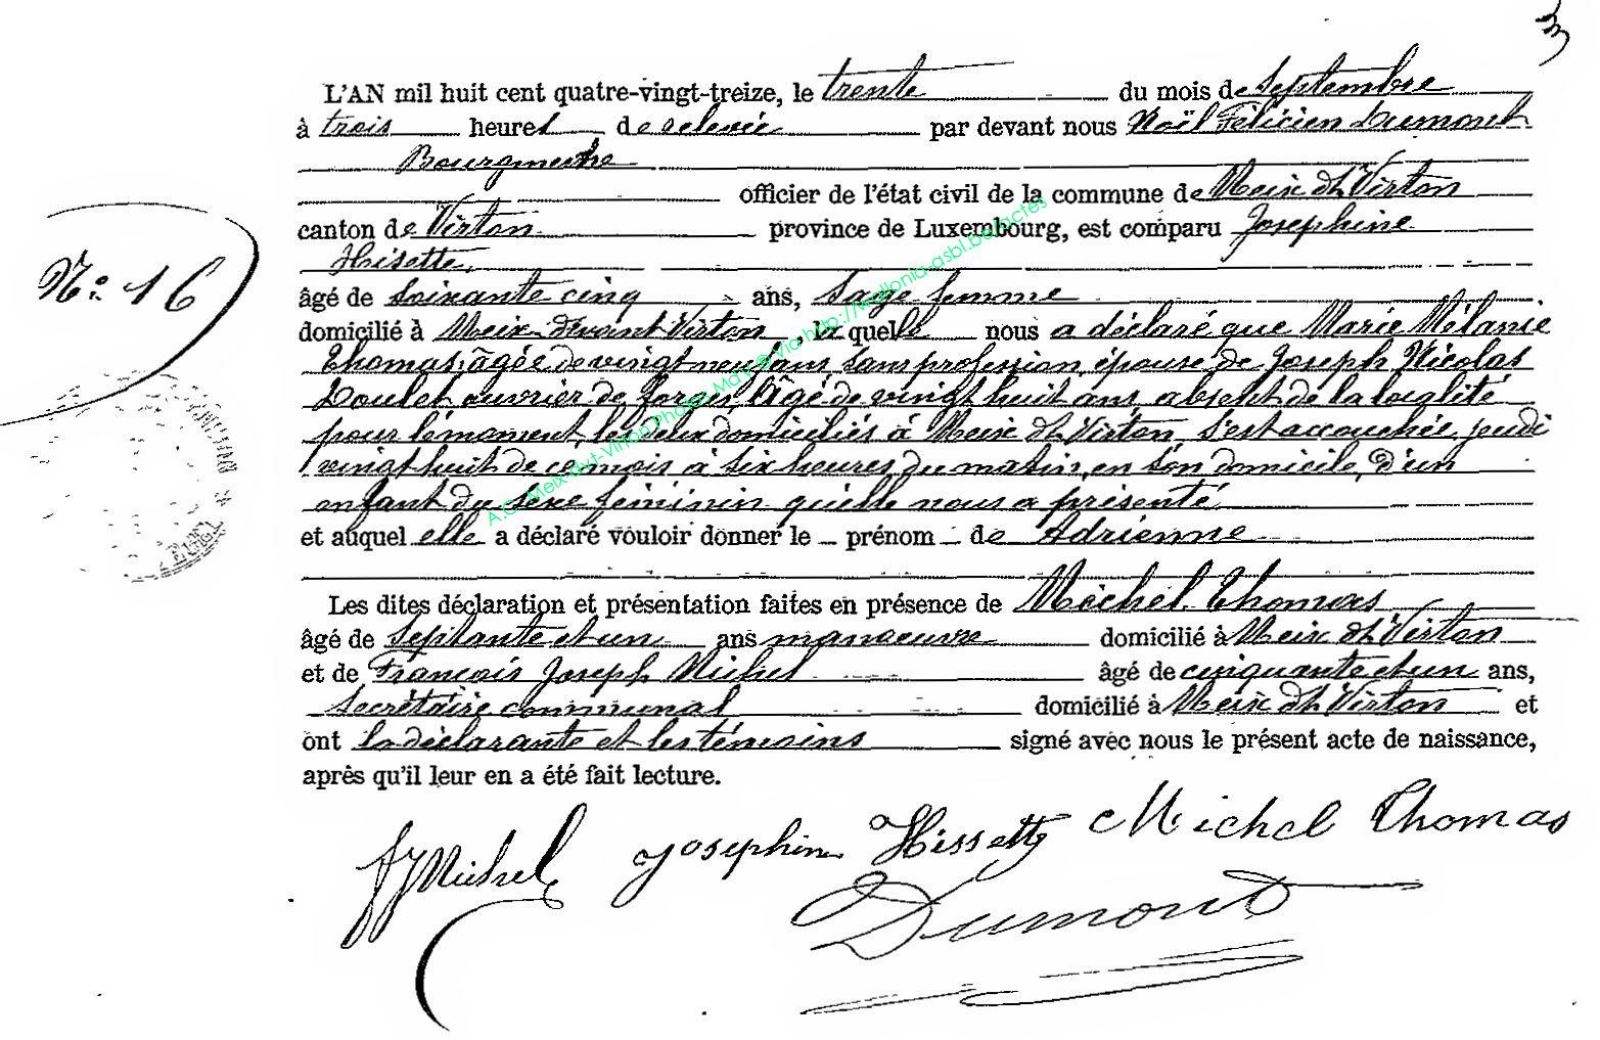 3
L'AN mil huit cent quatre-vingt-treize, le trente du mois de Septembre
à trois heures de relevée par devant nous Noël Félicien Dumont
Bourgmestre
officier de l'état civil de la commune de Meix dt Virton
canton de Virton province de Luxembourg, est comparu Josephine
Hisette,
Nº 16
âgé de soixante cinq ans, Sage femme
domicilié à Meix-devant-Virton, laquelle nous a déclaré que Marie Mélanie
Thomas, âgée de vingt neuf ans, sans profession, épouse de Joseph Nicolas
Doulet ouvrier de forges, âgé de vingt huit ans, absent de la localité
pour le moment, les deux domiciliés à Meix dt Virton, s'est accouchée, jeudi
vingt huit de ce mois à six heures du matin, en son domicile, d'un
enfant du sexe féminin qu'elle nous a présenté
et auquel elle a déclaré vouloir donner le prénom de Adrienne
Les dites déclaration et présentation faites en présence de Michel Thomas
âgé de Septante et un ans manoeuvre domicilié à Meix dt Virton
et de François Joseph Michel âgé de cinquante et un ans,
Secrétaire communal domicilié à Meix dt Virton et
ont la déclarante et les témoins signé avec nous le présent acte de naissance,
après qu'il leur en a été fait lecture.
FJMichel Josephine Hissette Michel Thomas
Dumont